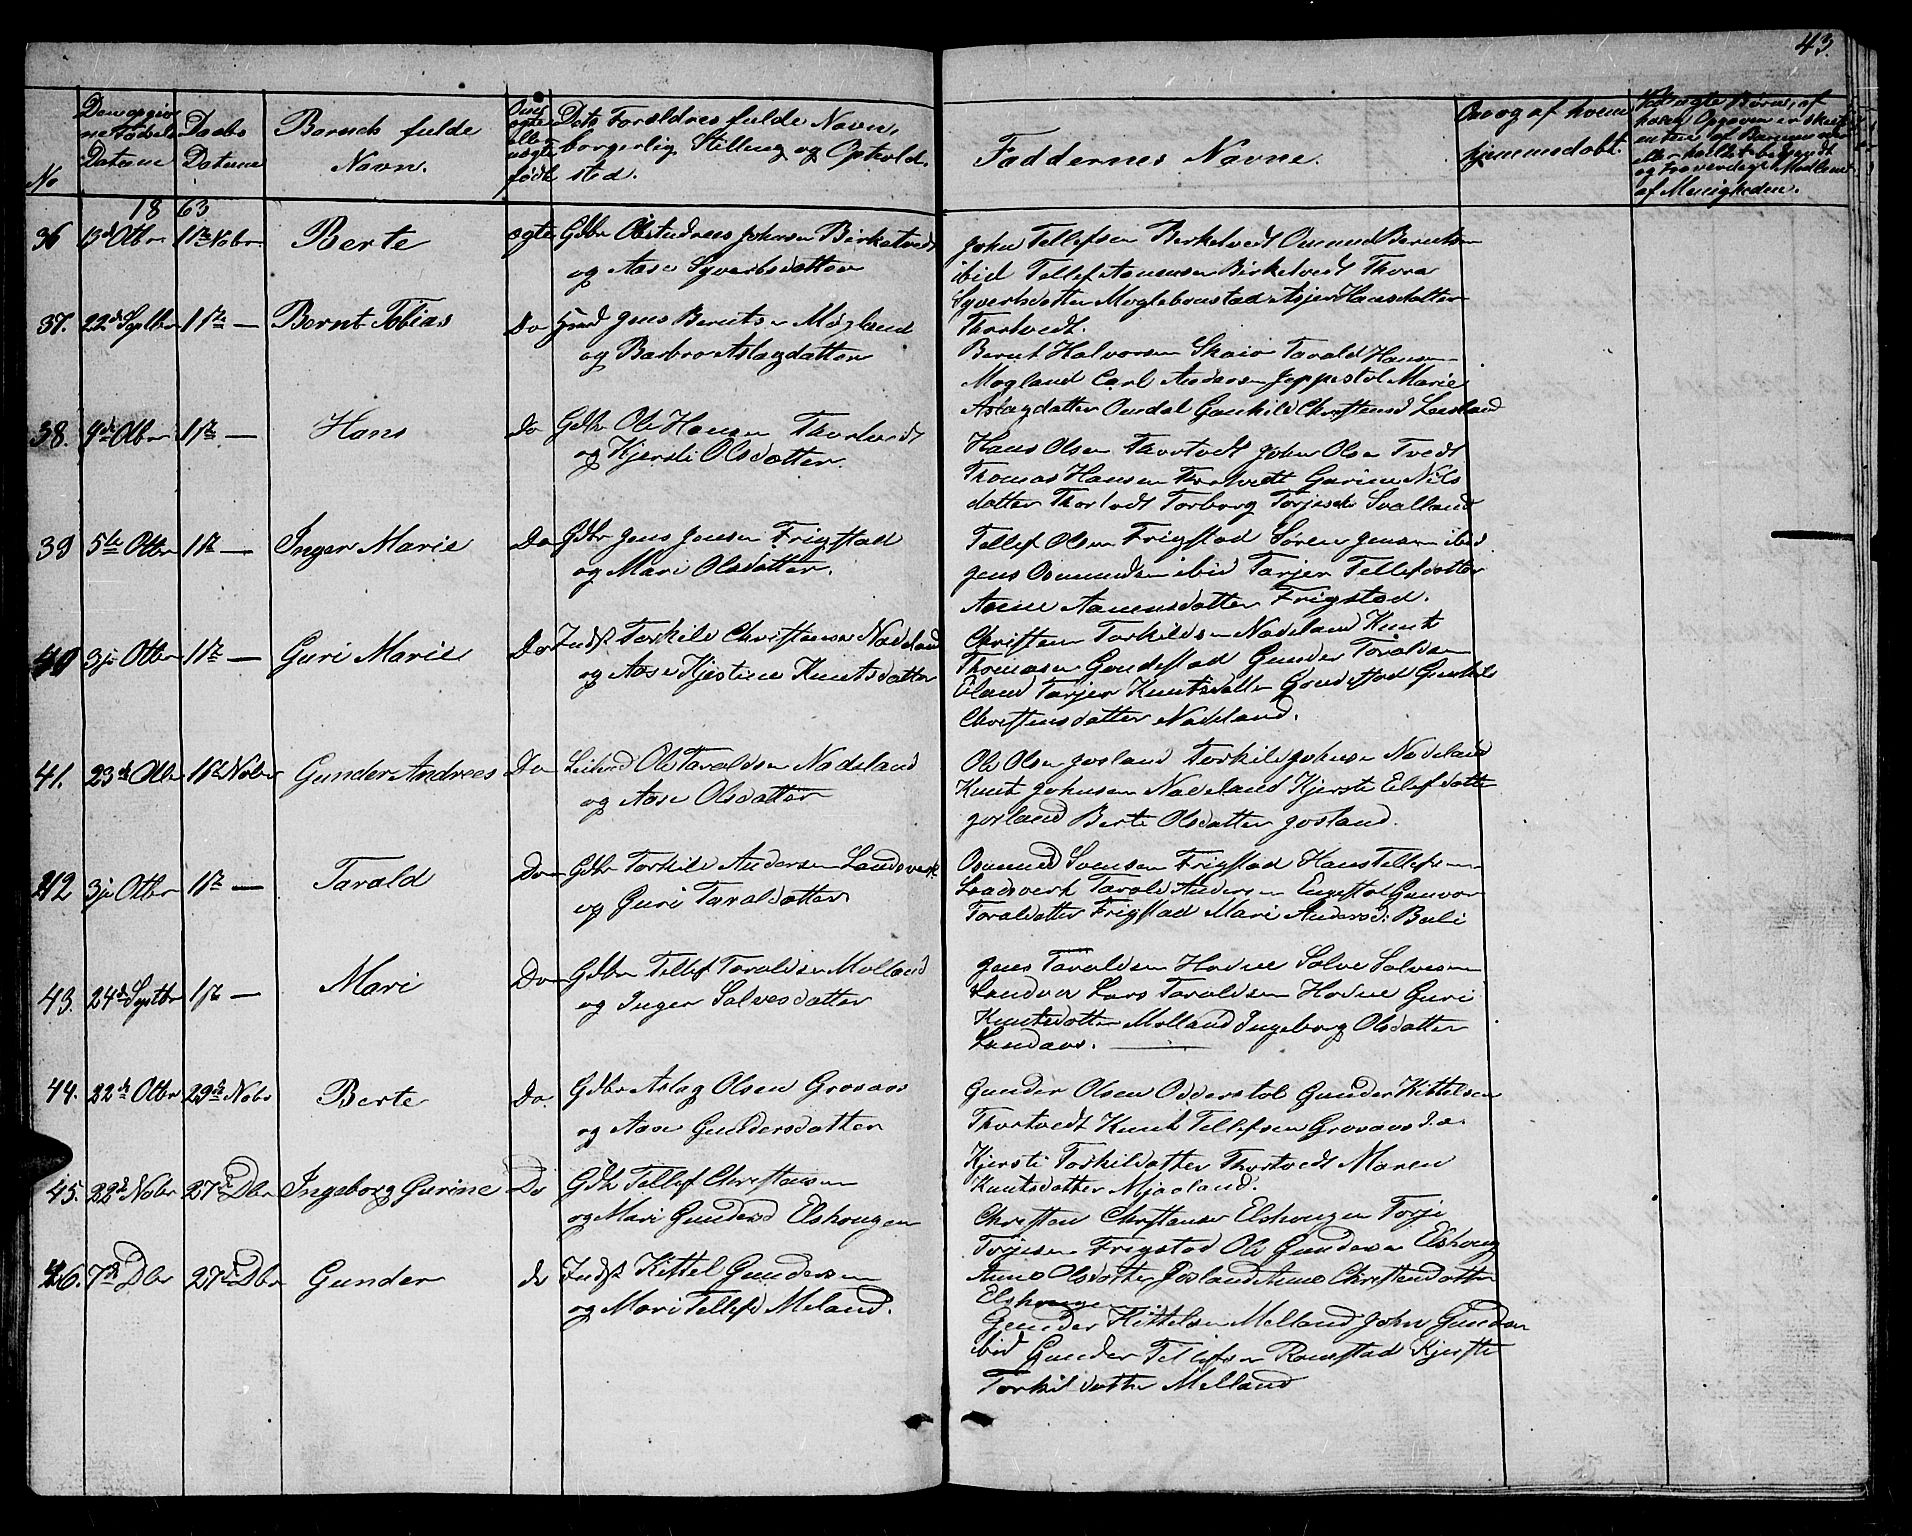 43.
No
Datum
Daabs
Datum
Barnets fulde
Navn.
Dets Forældres fulde Navn,
borgerlig Stilling og Ophold
sted.
Faddernes Navne.
Og og af hvem
hjemmedøbt.
af Menigheden.
1863
36 13d Otbr 1ste Nobr Berte ægte Gdbr Johnsen Birketvedt
og Aase Syvertsdatter
John Tellefsen Birketvedt Omund Berntsen
ibid Tellef Aanensen Birkelvedt Thora
Syvertsdatter Moglebonstad Asjer Hansdatter
Thortvedt.
37. 22d Septbr 1ste — Bernt Tobias Do Jens Berntsen Mogland
og Barbro Aslagdatter
Bernt Halvorsen Skaio Tarald Hansen
Mogland Carl Andersen Jeppestol Marie
Aslagdatter Omdal Gunhild Christensd Lusland
38. 9d Otbr 1ste — Hans Do Gdbr Ole Hansen Thortvedt
og Kjersti Olsdatter.
Hans Olsen Thortvedt John Olsen Tvedt
Thomas Hansen Thortvett Gurine Nils
datter Thortvedt Torborg Torjesdr Svaland
39 5te Otbr 1ste — Inger Marie Do Gdbr Jens Jensen Frigstad
og Mari Olsdatter.
Tellef Olsen Frigstad Søren Jensen ibid
Jens Osmundsen ibid Tarjer Tellefsdatter
Anne Aanensdatter Frigstad.
40 3je Otbr 1ste — Guri Marie Do Indst Torkild Christensen Nadeland
og Aase Kjestine Knutsdatter
Christen Torkildsen Nadeland Knut
Thomasen Gundestad Gunder Taraldsen
Eland Tarjer Knutsdatter Gundestad Gunhild
Christensdatter Nadeland.
41. 23d Otbr 1ste Nobr Gunder Andreas Do Leilend Ole Taraldsen Nadeland
og Aase Olsdatter
Ole Olsen Josland Torkild Johnsen Nadeland
Knut Johnsen Nadeland Kjersti Elefsdatte
Josland Berte Olsdatter Josland.
42 3je Otbr 1ste — Tarald Do Gdbr Torkild Andersen Landsverk
og Guri Taraldsdatter
Osmund Svensen Frigstad Hans Tellefsen
Landsverk Tarald Andersen Engestol Gunvor
Taraldsdatter Frigstad Mari Andersd. Beli
43. 24d Septbr 1ste — Mari Do Gdbr Tellef Taraldsen Molland
og Inger Salvesdatter
Jens Taraldsen Hodne Salve Salvesen
Landaas Lars Taraldsen Hodne Guri
Knutsdatter Molland Ingeborg Olsdatter
Landaas.
44. 22d Otbr 29de Nobr Berte Do. Gdbr Aslag Olsen Grosaas
og Aase Gundersdatter
Gunder Olsen Odderstol Gunder Kittelsen
Thortvedt Knut Tellefsen Grosaas
Kjersti Torkildatter Thortvedt Maren
Knutsdatter Mjaaland.
45. 22d Nobr 27d Dbr Ingeborg Gurine Do Gdbr Tellef Christensen
og Mari Gundersd Elshougen
Christen Christensen Elshougen Torje
Torjesen Frigstad Ole Gundersen Elshoug
Anne Olsdatter Josland Anne Christensdatter
Elshougen
46. 7d Dbr 27d Dbr Gunder do Indst Kittel Gundersen
og Mari Tellefsd Meland.
Gunder Kittelsen Melland John Gundersen
ibid Gunder Tellefsen Romstad Kjersti
Torkildsdatter Melland